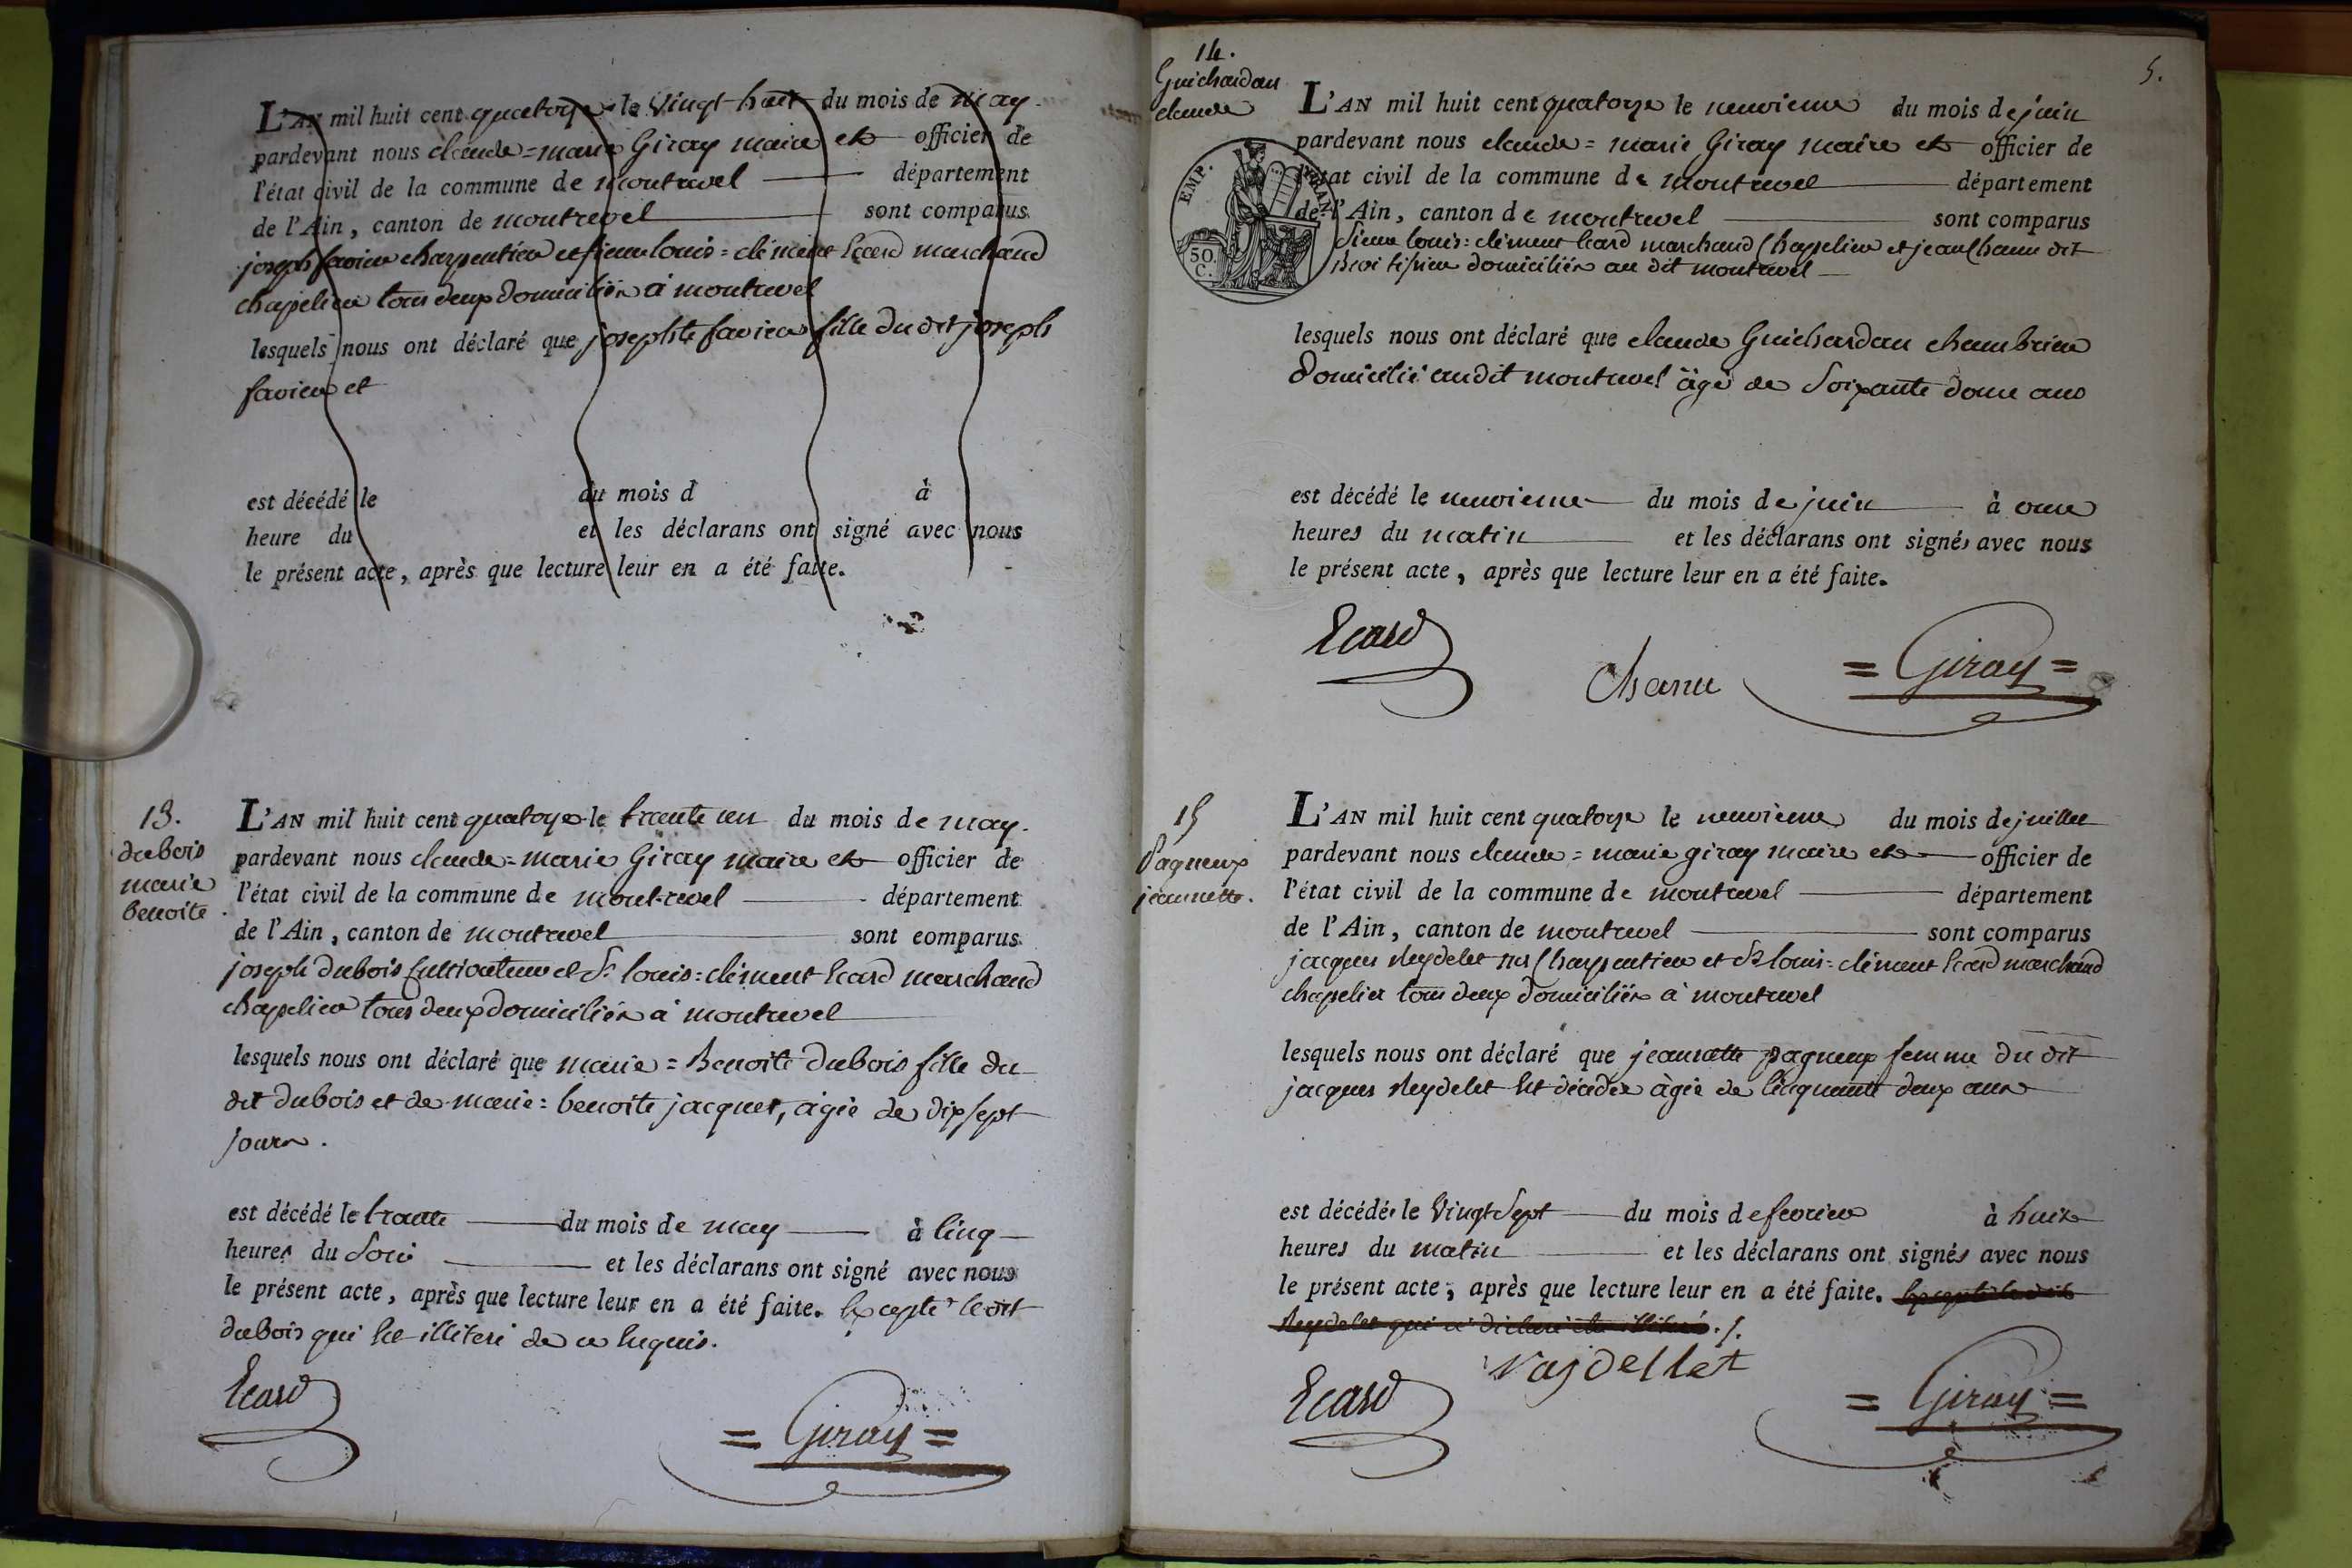 L'AN mil huit cent quatorze le vingt huit du mois de may
pardevant nous claude=marie Giray maire et officier de
l'état civil de la commune de montrevel département
de l'Ain, canton de montrevel sont comparus
joseph favier charpentier et sieur louis=clément Ecard marchand
chapelier tous deux domiciliés à montrevel
lesquels nous ont déclaré que josephte favier fille du dit joseph
favier et
est décédé le du mois d à
heure du et les déclarans ont signé avec nous
le présent acte, après que lecture leur en a été faite.
13.
dubois
marie
benoite.
L'AN mil huit cent quatorze le trante un du mois de may.
pardevant nous claude=marie Giray maire et officier de
l'état civil de la commune de mont-revel département
de l'Ain, canton de montrevel sont comparus
joseph dubois Cultivateur et Sr louis=clément Ecard marchand
chapelier tous deux domiciliés à montrevel
lesquels nous ont déclaré que marie=Benoite dubois fille du
dit dubois et de marie=benoite jacquet, agée de dix sept
jours.
est décédé le trante du mois de may à Cinq
heures du Soir et les déclarans ont signé avec nous
le présent acte, après que lecture leur en a été faite. Excepté ledit
dubois qui Est illiteré de ce Enquis.
Ecard
=Giray=
5.
14.
Guichardan
claude
EMP. FRAN.
50.
C.
L'AN mil huit cent quatorze le neuvieme du mois de juin
pardevant nous claude=marie Giray maire et officier de
l'état civil de la commune de montrevel département
de l'Ain, canton de montrevel sont comparus
Sieur louis=clément Ecard marchand Chapelier et jean Chanu dit
domiciliés au dit montrevel
lesquels nous ont déclaré que claude Guichardan
domicilié audit montrevel âgé de Soixante douze ans
est décédé le neuvieme du mois de juin à onze
heures du matin et les déclarans ont signés avec nous
le présent acte, après que lecture leur en a été faite.
Ecard
Chanu
=Giray=
15
Pagneux
jeannette.
L'AN mil huit cent quatorze le neuvième du mois de juillet
pardevant nous claude=marie giray maire et officier de
l'état civil de la commune de montrevel département
de l'Ain, canton de montrevel sont comparus
jacques Reydelet Charpentier et Sr louis=clément Ecard marchand
chapelier tous deux domiciliés à montrevel
lesquels nous ont déclaré que jeannette pagneux femme du dit
jacques Reydelet Est décédée âgée de Cinquante deux ans
est décédé le Vingt Sept du mois de fevrier à huit
heures du matin et les déclarans ont signés avec nous
le présent acte, après que lecture leur en a été faite. Excepté le dit
Reydelet qui a déclaré être illiteré./.
Ecard
raydellet
=Giray=